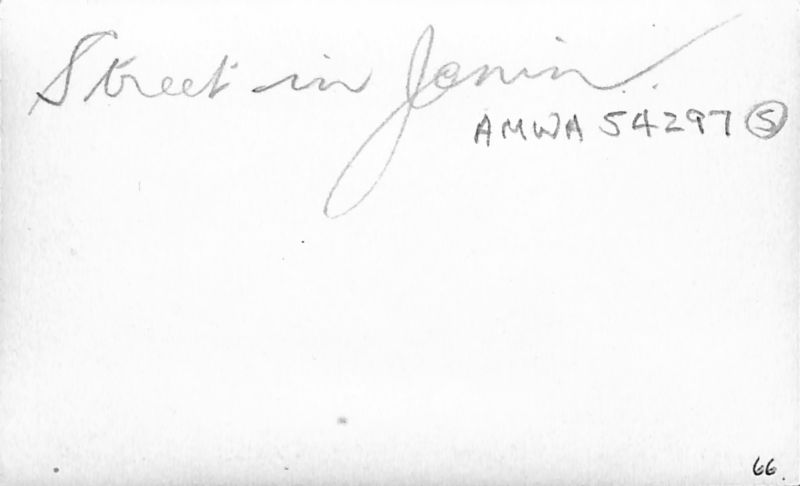 Street in Jenin.
AMWA 54297 S
66.